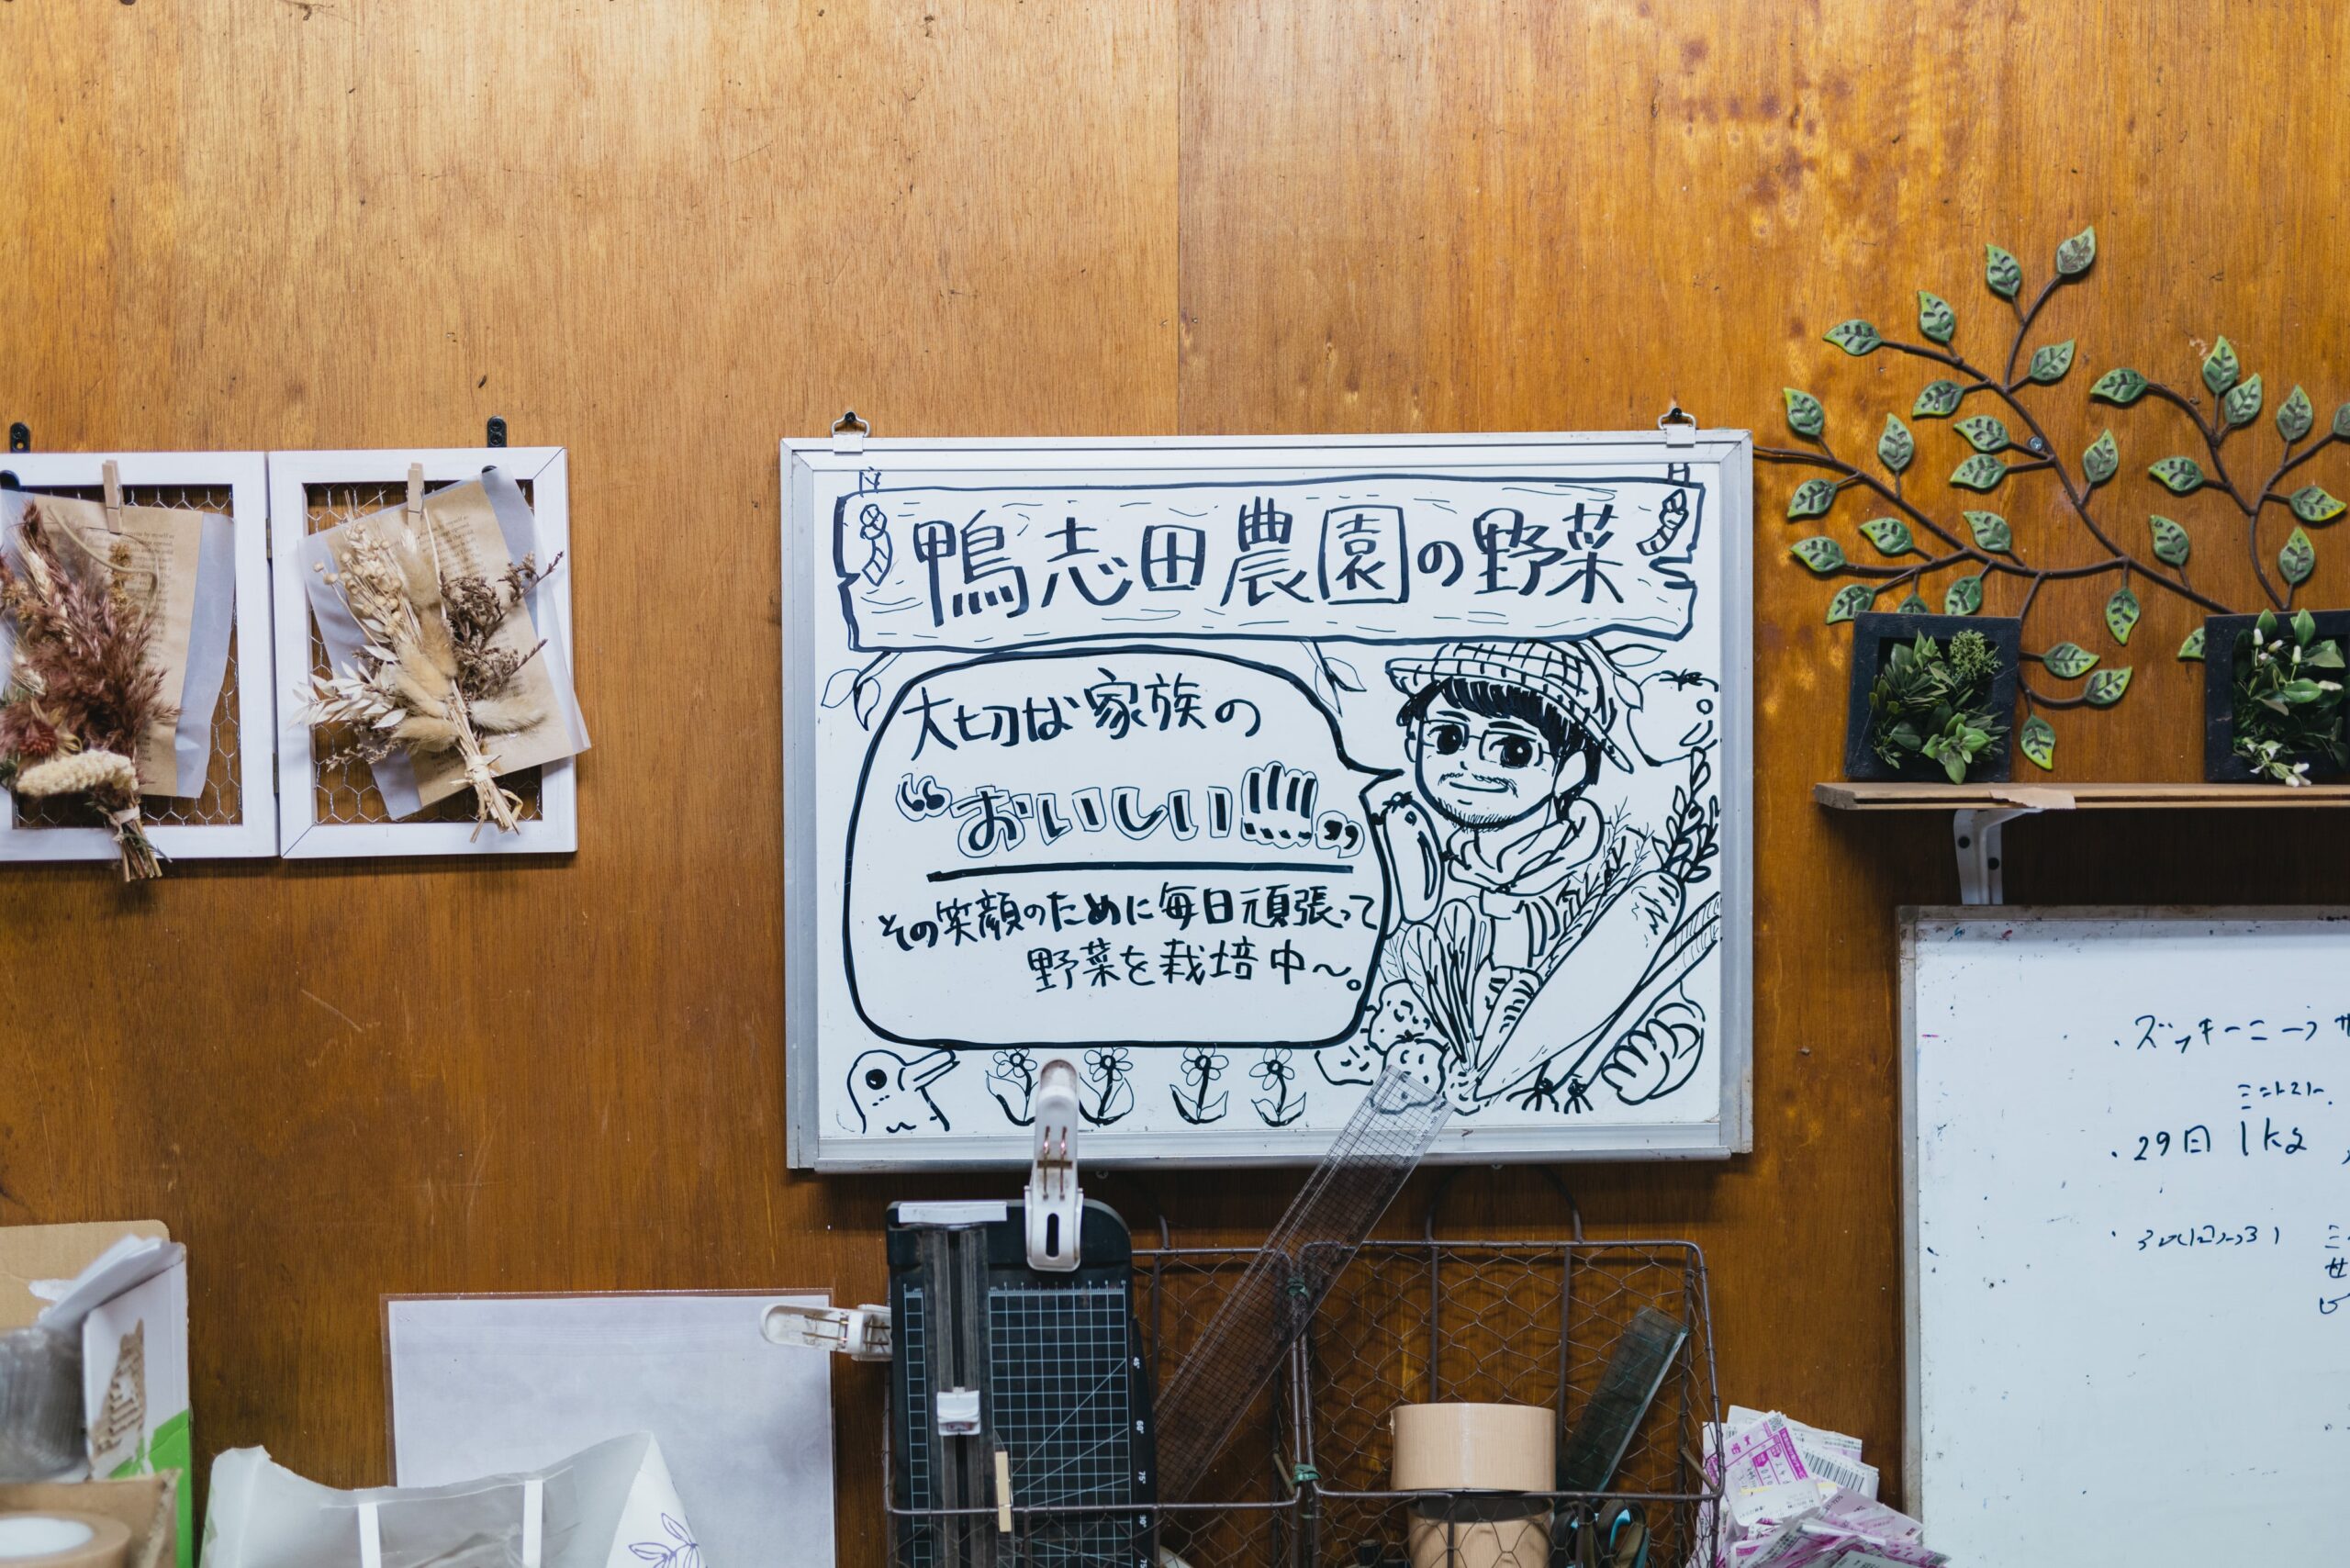 鴨志田農園の野菜
大切な家族の
“おいしい!!!!”
その笑顔のために毎日頑張って
野菜を栽培中〜。
・ズッキーニ→
ミニトマト.
・29日 1kg